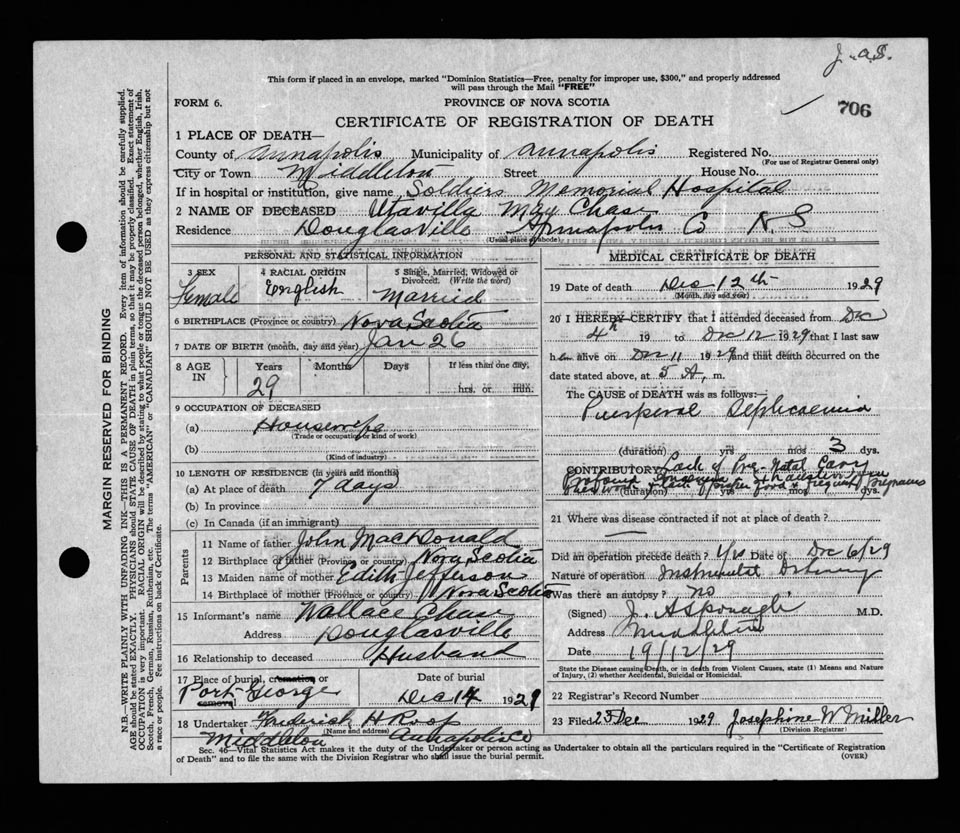 J.A.S.
This form if placed in an envelope, marked "Dominion Statistics—Free, penalty for improper use, $300," and properly addressed
will pass through the Mail "FREE"
FORM 6.
PROVINCE OF NOVA SCOTIA
706
CERTIFICATE OF REGISTRATION OF DEATH
1 PLACE OF DEATH—
County of Annapolis Municipality of Annapolis Registered No.
(For use of Registrar General only)
City or Town Middleton Street House No.
If in hospital or institution, give name Soldiers Memorial Hospital
2 NAME OF DECEASED Utavilla May Chase
Residence Douglasville Annapolis Co N.S
(Usual place of abode)
PERSONAL AND STATISTICAL INFORMATION
3 SEX Female
4 RACIAL ORIGIN English
5 Single, Married, Widowed or Divorced. (Write the word) Married
6 BIRTHPLACE (Province or country) Nova Scotia
7 DATE OF BIRTH (month, day and year) Jan 26
8 AGE IN Years Months Days If less than one day,
29 hrs. or min.
9 OCCUPATION OF DECEASED
(a) Housewife
(Trade or occupation or kind of work)
(b)
(Kind of industry)
10 LENGTH OF RESIDENCE (in years and months)
(a) At place of death 7 days
(b) In province
(c) In Canada (if an immigrant)
Parents
11 Name of father John MacDonald
12 Birthplace of father (Province or country) Nova Scotia
13 Maiden name of mother Edith Jefferson
14 Birthplace of mother (Province or country) Nova Scotia
15 Informant's name Wallace Chase
Address Douglasville
16 Relationship to deceased Husband
17 Place of burial, cremation or removal Port George
Date of burial Dec 14 1929
18 Undertaker Frederick H Roop
(Name and address)
Middleton Annapolis Co
MEDICAL CERTIFICATE OF DEATH
19 Date of death Dec 12th 1929
(Month, day and year)
20 I HEREBY CERTIFY that I attended deceased from Dec
4th 19 to Dec 12 1929 that I last saw
her alive on Dec 11 1929 and that death occurred on the
date stated above, at 5 A. m.
The CAUSE OF DEATH was as follows:
Puerperal Septicaemia
(duration) yrs mos 3 dys.
CONTRIBUTORY Lack of Pre-Natal Care
Profound
(duration) yrs mos dys.
21 Where was disease contracted if not at place of death?
Did an operation precede death? Yes Date of Dec 6/29
Nature of operation Instrumental Delivery
Was there an autopsy? no
(Signed) J. A Sponagle M.D.
Address Middleton
Date 19/12/29
State the Disease causing Death, or in death from Violent Causes, state (1) Means and Nature
of Injury, (2) whether Accidental, Suicidal or Homicidal.
22 Registrar's Record Number
23 Filed 23 Dec 1929 Josephine W Miller
(Division Registrar)
Sec. 46—Vital Statistics Act makes it the duty of the Undertaker or person acting as Undertaker to obtain all the particulars required in the "Certificate of Registration
of Death" and to file the same with the Division Registrar who shall issue the burial permit.
(OVER)
MARGIN RESERVED FOR BINDING
N.B.—WRITE PLAINLY WITH UNFADING INK—THIS IS A PERMANENT RECORD. Every item of information should be carefully supplied.
AGE should be stated EXACTLY. PHYSICIANS should STATE CAUSE OF DEATH in plain terms, so that it may be properly classified. Exact statement of
OCCUPATION is very important. RACIAL ORIGIN will be described by stating to what people or tongue the deceased person belonged, whether English, Irish,
Scotch, French, German, Russian, Ruthenian, etc. The terms "AMERICAN" or "CANADIAN" SHOULD NOT BE USED as they express citizenship but not
a race or people. Fee instructions on back of Certificate.